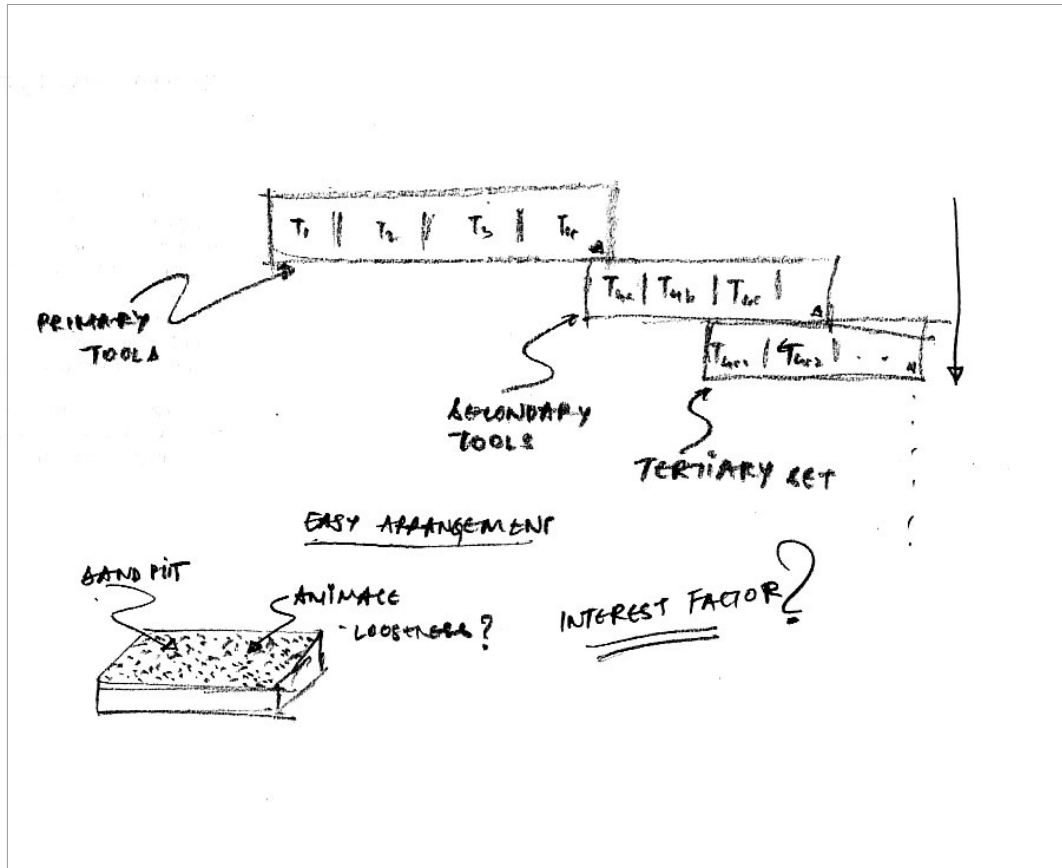 T1 | T2 | T3 | T4
T4a | T4b | T4c |
T4c1 | T4c2 | ...
PRIMARY
TOOLS
SECONDARY
TOOLS
TERTIARY SET
EASY ARRANGEMENT
SAND PIT
ANIMATE
- LOOSENESS?
INTEREST FACTOR?